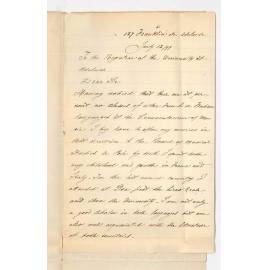 127 Franklin St. Adelaide
July 12. 99
To the Registrar of the University of
Adelaide
Dear Sir
Having noticed that there is at
no school of either French or Italian
languages at the Conservatorium of
I beg to offer my services in
that direction to the Board of
as I spent both
my childhood and youth in France and
Italy. In the last named country I
attended at first the
and then the University. I am not only
a good scholar in both languages but am
also well acquainted with the literature
of both countries.